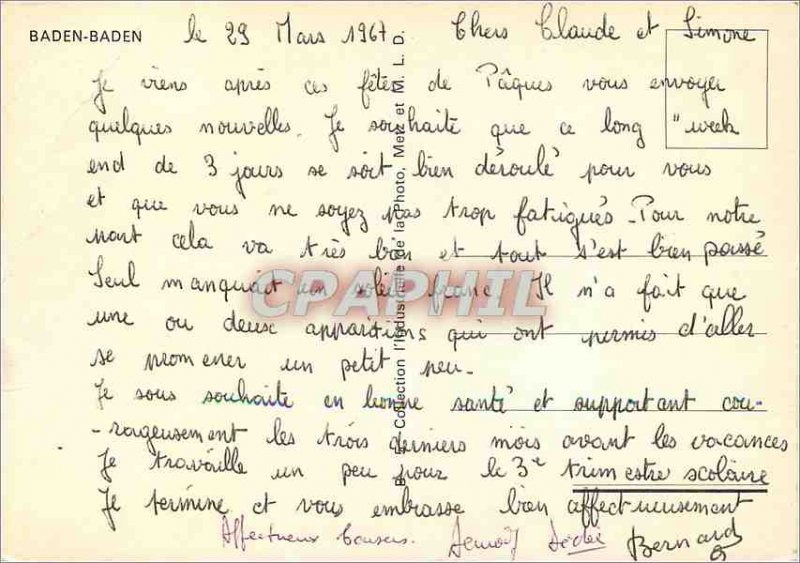 BADEN-BADEN le 29 Mars 1967. Chers Claude et Simone
Je viens après ces fêtes de Pâques vous envoyer
quelques nouvelles. Je souhaite que ce long "week
end de 3 jours se soit bien déroulé pour vous
et que vous ne soyez pas trop fatigués - Pour notre
part cela va très bien et tout s'est bien passé
Seul manquait un soleil franc. Il n'a fait que
une ou deux apparitions qui ont permis d'aller
se promener un petit peu.
Je vous souhaite en bonne santé et supportant cou-
-rageusement les trois derniers mois avant les vacances
Je travaille un peu pour le 3e trimestre scolaire
Je termine et vous embrasse bien affectueusement
Affectueux baisers. Bernard
Collection l'Industrielle de la Photo, Metz et M. L. D.
CPAPHIL